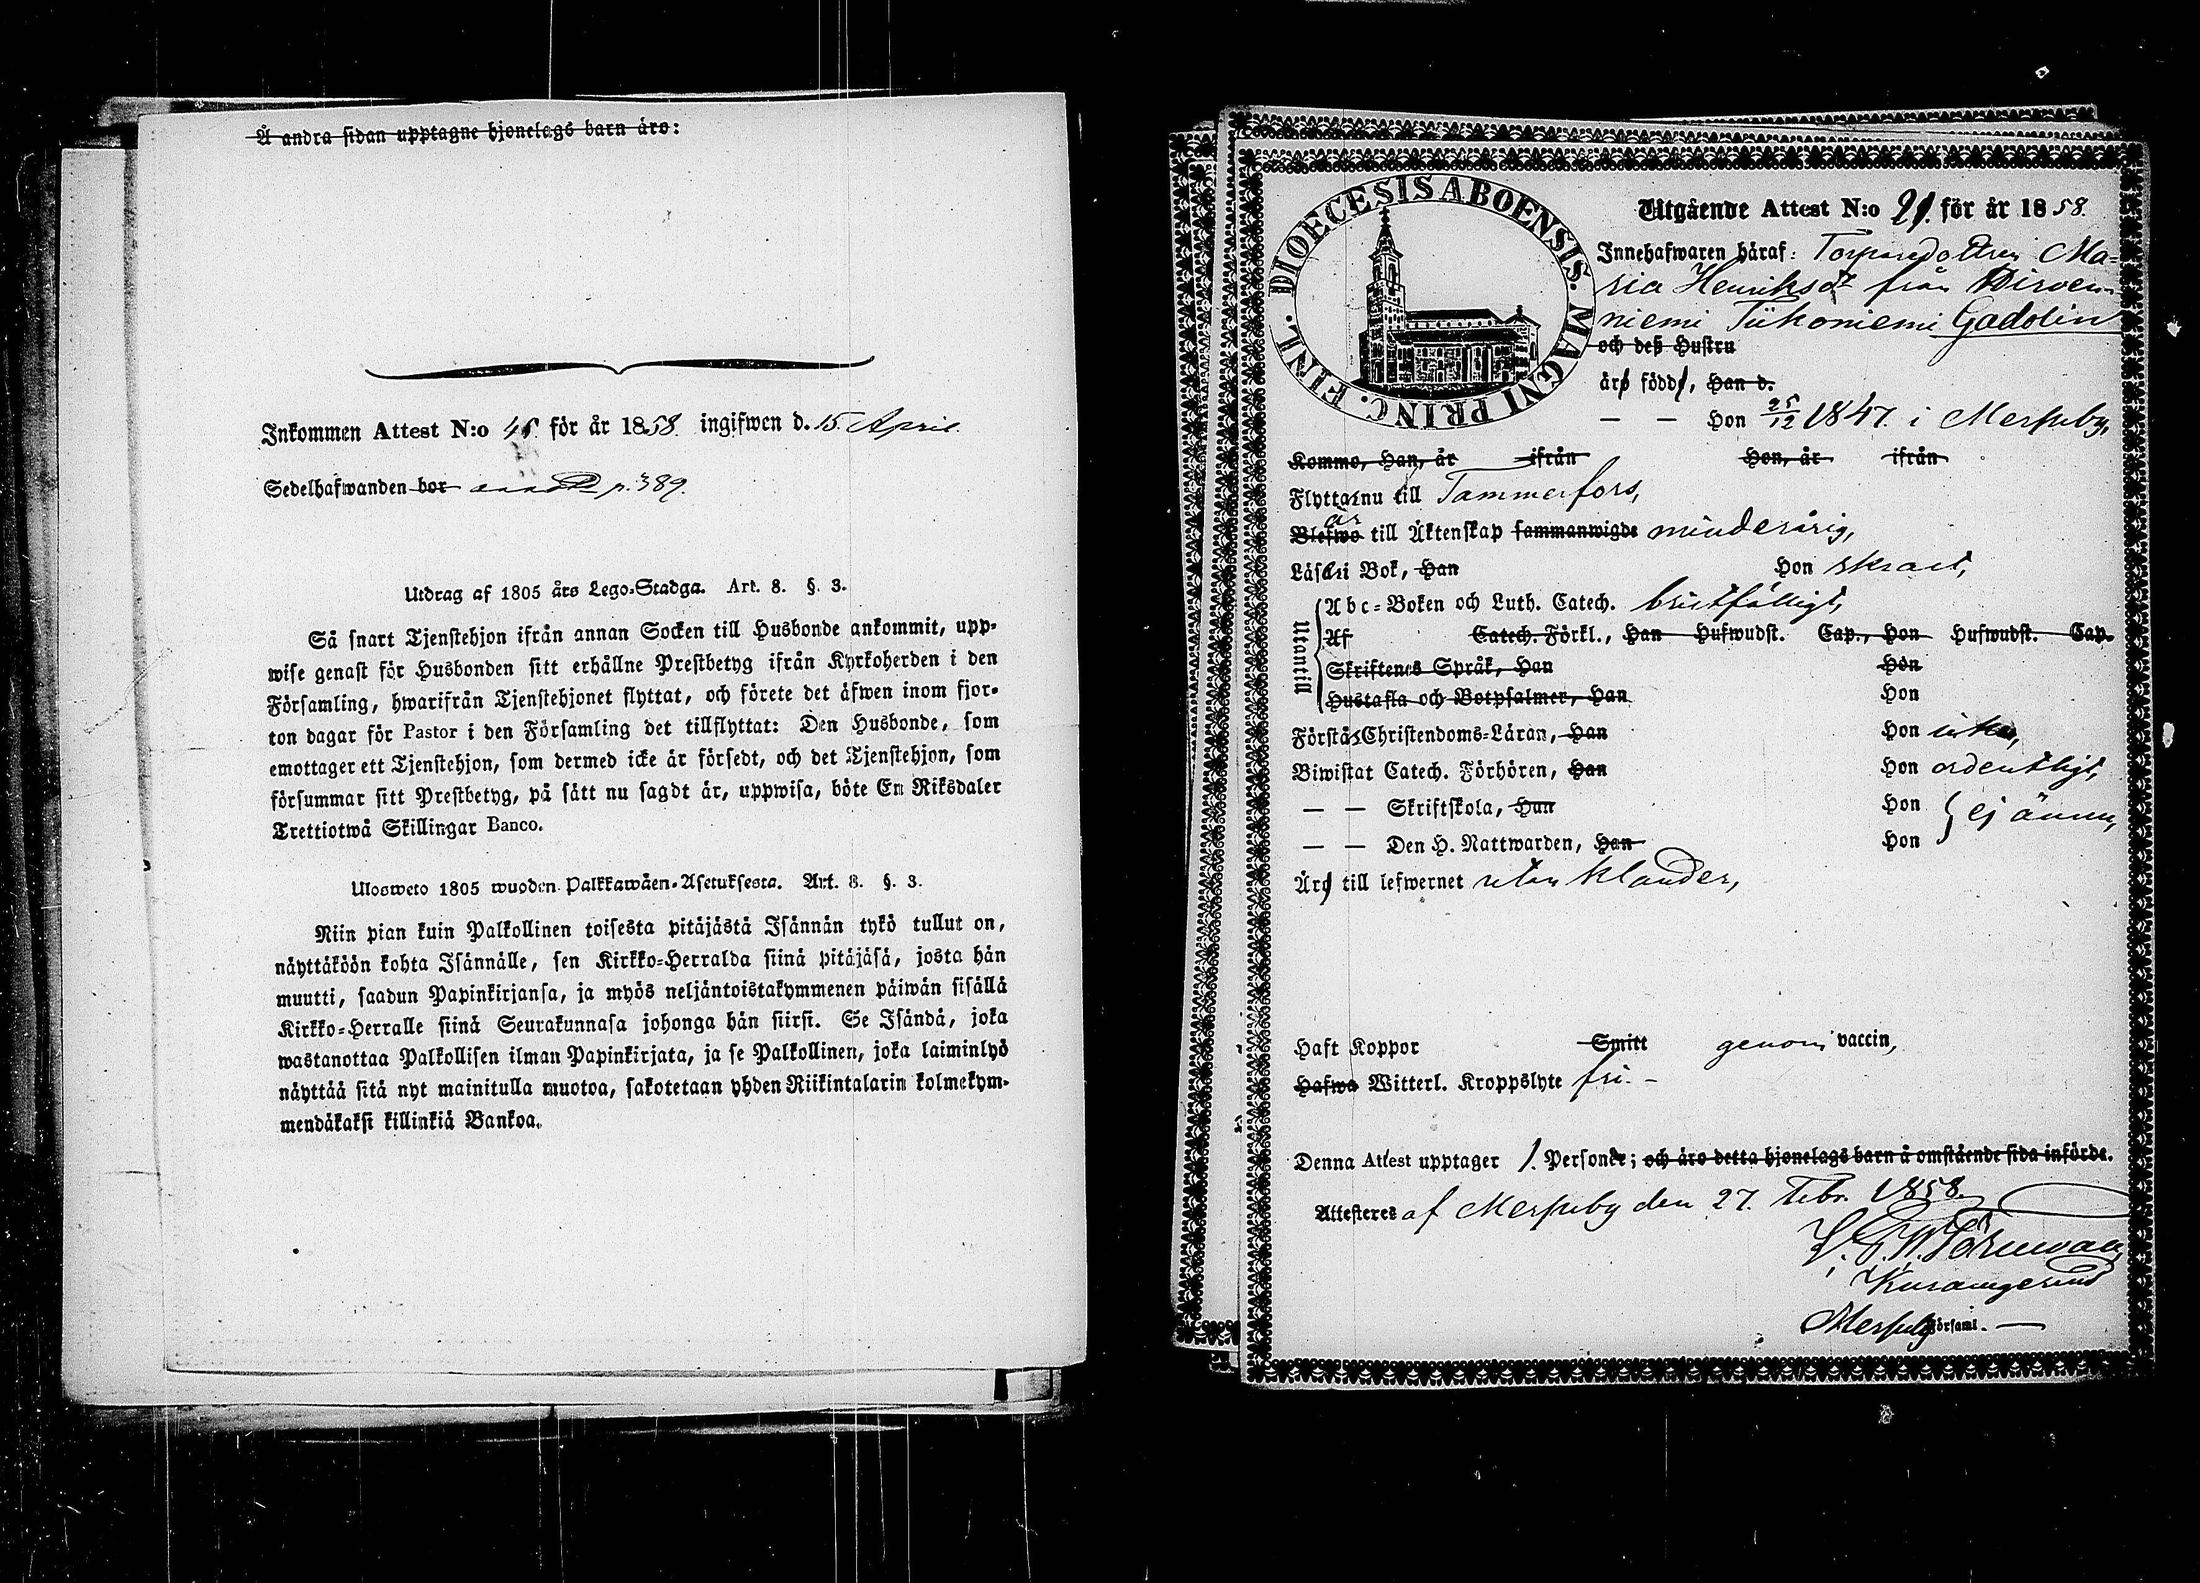 Å andra sidan upptagne hjonelags barn äro:
Inkommen Attest N:o 45 för år 1858. ingifwen d. 15. April.
Sedelhafwanden bor p. 389.
Utdrag af 1805 års Lego-Stadga. Art. 8. §. 3.
Så snart Tjenstehjon ifrån annan Socken till Husbonde ankommit, upp-
wise genast för Husbonden sitt erhållne Prestbetyg ifrån Kyrkoherden i den
Församling, hwarifrån Tjenstehjonet flyttat, och förete det äfwen inom fjor-
ton dagar för Pastor i den Församling det tillflyttat: Den Husbonde, som
emottager ett Tjenstehjon, som dermed icke är försedt, och det Tjenstehjon, som
försummar sitt Prestbetyg, på sätt nu sagdt är, uppwisa, böte En Riksdaler
Trettiotwå Skillingar Banco.
Ulosweto 1805 wuoden Palkkawäen-Asetuksesta. Art. 8. §. 3.
Niin pian kuin Palkollinen toisesta pitäjästä Isännän tykö tullut on,
näyttäköön kohta Isännälle, sen Kirkko-Herralda siinä pitäjäsä, josta hän
muutti, saadun Papinkirjansa, ja myös neljäntoistakymmenen päiwän sisällä
Kirkko-Herralle siinä Seurakunnasa johonga hän siirsi. Se Isändä, joka
wastanottaa Palkollisen ilman Papinkirjata, ja se Palkollinen, joka laiminlyö
näyttää sitä nyt mainitulla muotoa, sakotetaan yhden Riikintalarin kolmekym-
mendäkaksi killinkiä Bankoa.
DIOECESIS ABOENSIS. MAGNI PRINC. FINL.
Utgående Attest N:o 21. för år 1858.
Innehafwaren häraf: Torparedottren Ma-
ria Henriksdt från Hirven-
niemi Tiikoniemi Gadolin
och deß Hustru
äro född, Han d.
— — Hon 25/12 1847. i Merseby,
Kommo, Han, år ifrån Hon, år ifrån
Flyttar nu till Tammerfors,
är
Blefwo till Äktenskap sammanwigde minderårig,
Läser i Bok, Han Hon skrait,
Utantill
Abc-Boken och Luth. Catech. bristfälligt,
Af Catech. Förkl., Han Hufwudst. Cap., Hon Hufwudst. Cap.
Skriftenes Språk, Han Hon
Hustafla och Botpsalmer, Han Hon
Förstår Christendoms-Läran, Han Hon icke,
Biwistat Catech. Förhören, Han Hon ordentligt,
— — Skriftskola, Han Hon ej ännu,
— — Den H. Nattwarden, Han Hon
Äro till lefwernet utan klander,
Haft Koppor Smitt genom vaccin,
Hafwa Witterl. Kroppslyte fri. –
Denna Attest upptager 1. Personer; och äro detta hjonelags barn å omstående sida införde.
Attesteres af Merseby den 27. Febr. 1858.
Törnwall
Kuramgerens
Merseby Församl. —